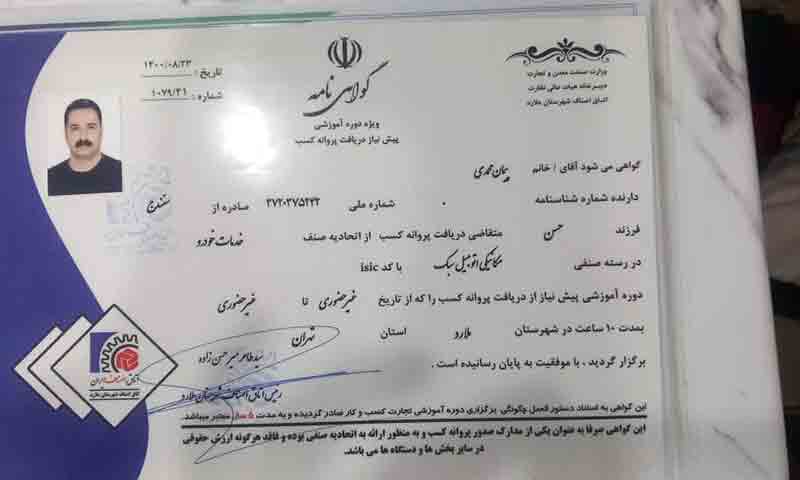 وزارت صنعت معدن و تجارت
دبیرخانه هیات عالی نظارت
اتاق اصناف شهرستان ملارد
گواهی نامه
ویژه دوره آموزشی
پیش نیاز دریافت پروانه کسب
تاریخ : ۱۴۰۰/۰۸/۲۳
شماره : ۱۰۷۹/۴۱
گواهی می شود آقای / خانم پیمان محمدی
دارنده شماره شناسنامه ۰ شماره ملی ۳۷۲۰۳۷۵۲۴۲ صادره از سنندج
فرزند حسن متقاضی دریافت پروانه کسب از اتحادیه صنف خدمات خودرو
در رسته صنفی مکانیکی اتومبیل سبک با کد isic
دوره آموزشی پیش نیاز از دریافت پروانه کسب را که از تاریخ غیر حضوری تا غیر حضوری
بمدت ۱۰ ساعت در شهرستان ملارد استان تهران
برگزار گردید ، با موفقیت به پایان رسانیده است .
سید طاهر میر حسن زاده
رئیس اتاق اصناف شهرستان ملارد
اتاق اصناف ایران
اتاق اصناف شهرستان ملارد
این گواهی به استناد دستور العمل چگونگی برگزاری دوره آموزشی تجارت کسب و کار صادر گردیده و به مدت ۵ سال معتبر میباشد.
این گواهی صرفا به عنوان یکی از مدارک صدور پروانه کسب و به منظور ارائه به اتحادیه صنفی بوده و فاقد هرگونه ارزش حقوقی
در سایر بخش ها و دستگاه ها می باشد.